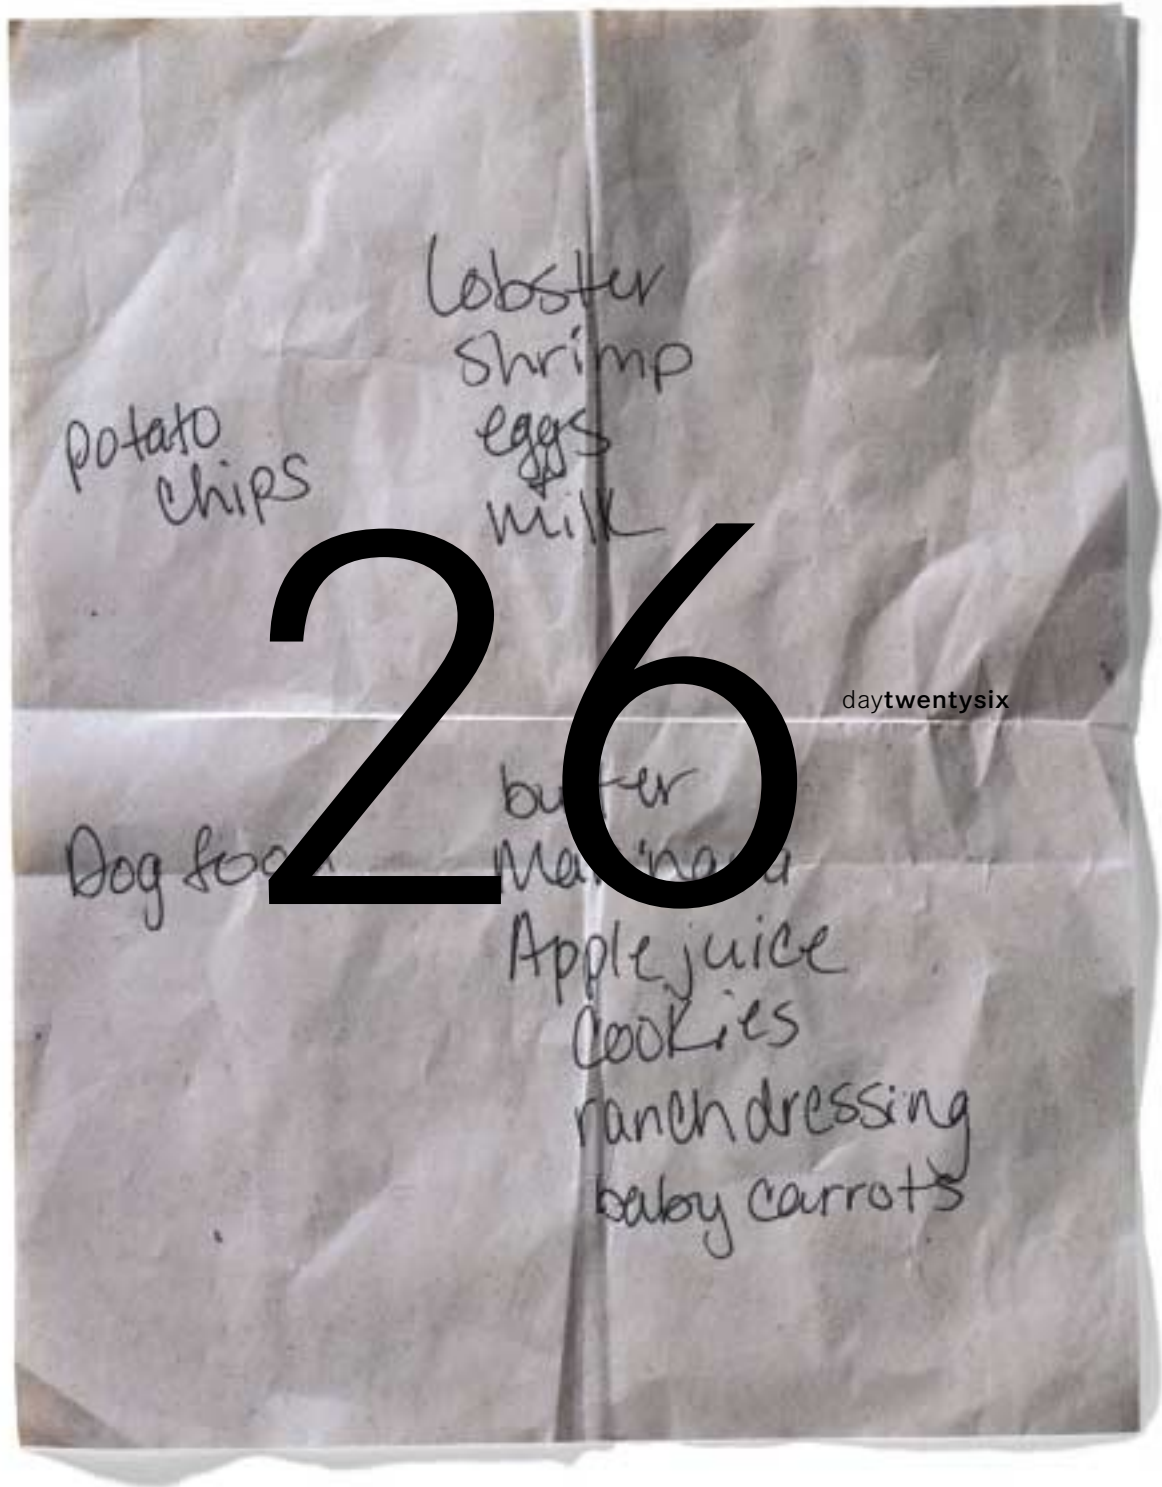 lobster
shrimp
eggs
milk
potato
chips
26
daytwentysix
butter
Dog food
Marinara
Apple juice
cookies
ranch dressing
baby carrots